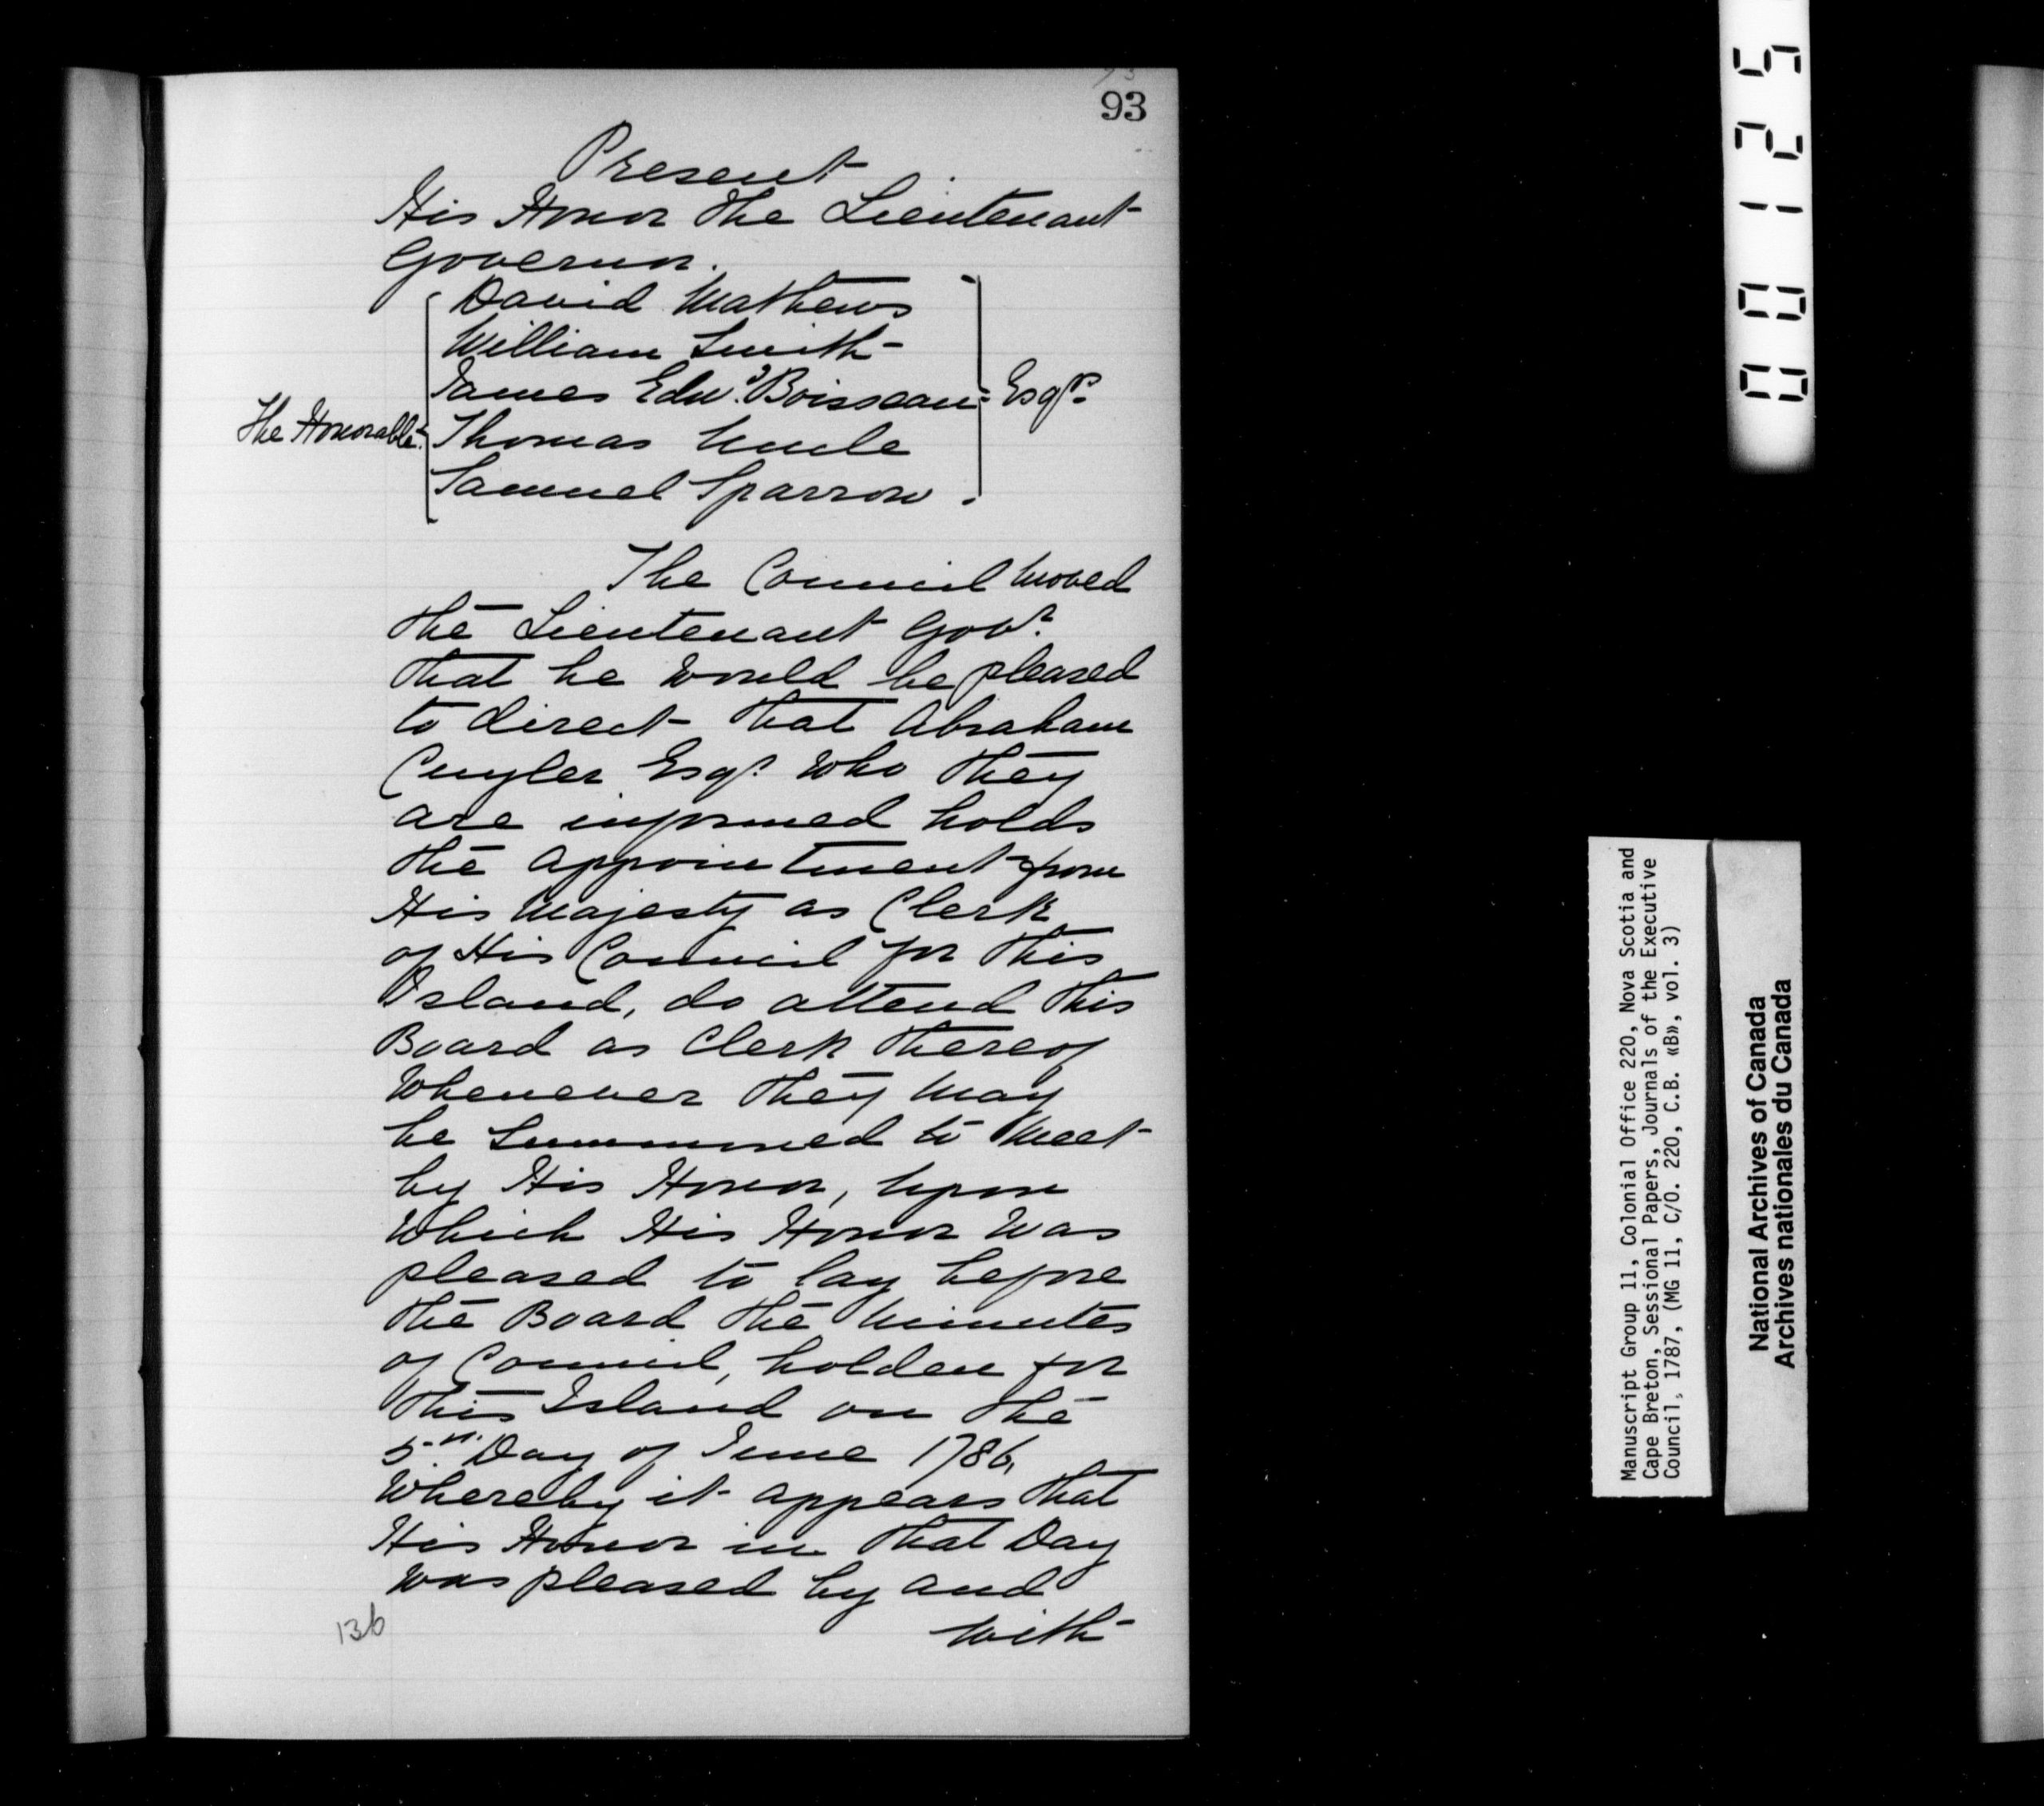 93
Present
His Honor the Lieutenant
Governor.
David Mathews
William Smith
James Edwd. Boisseau
Esqrs.
The Honorable
Thomas Uncle
Samuel Sparrow.
The Council moved
the Lieutenant Govr.
that he would be pleased
to direct that Abraham
Cuyler Esqr. who they
are informed holds
the appointment from
His Majesty as Clerk
of His Council for this
Island, do attend this
Board as Clerk thereof
Whenever they may
be Summoned to Meet
by His Honor, Upon
which His Honor was
pleased to lay before
the Board the Minutes
of Council, holden for
this Island on the
5th. Day of June 1786,
Whereby it appears that
His Honor in that Day
was pleased by and
with
136
00125
Manuscript Group 11, Colonial Office 220, Nova Scotia and
Cape Breton, Sessional Papers, Journals of the Executive
Council, 1787, (MG 11, C/O. 220, C.B. «B», vol. 3)
National Archives of Canada
Archives nationales du Canada